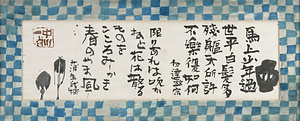 馬上少年過
世平白髪多
残軀天所許
不楽復如何
伊達政宗
限りあれば吹か
ねど花は散る
ものを
こころみじかき
春のやま風
蒲生氏郷